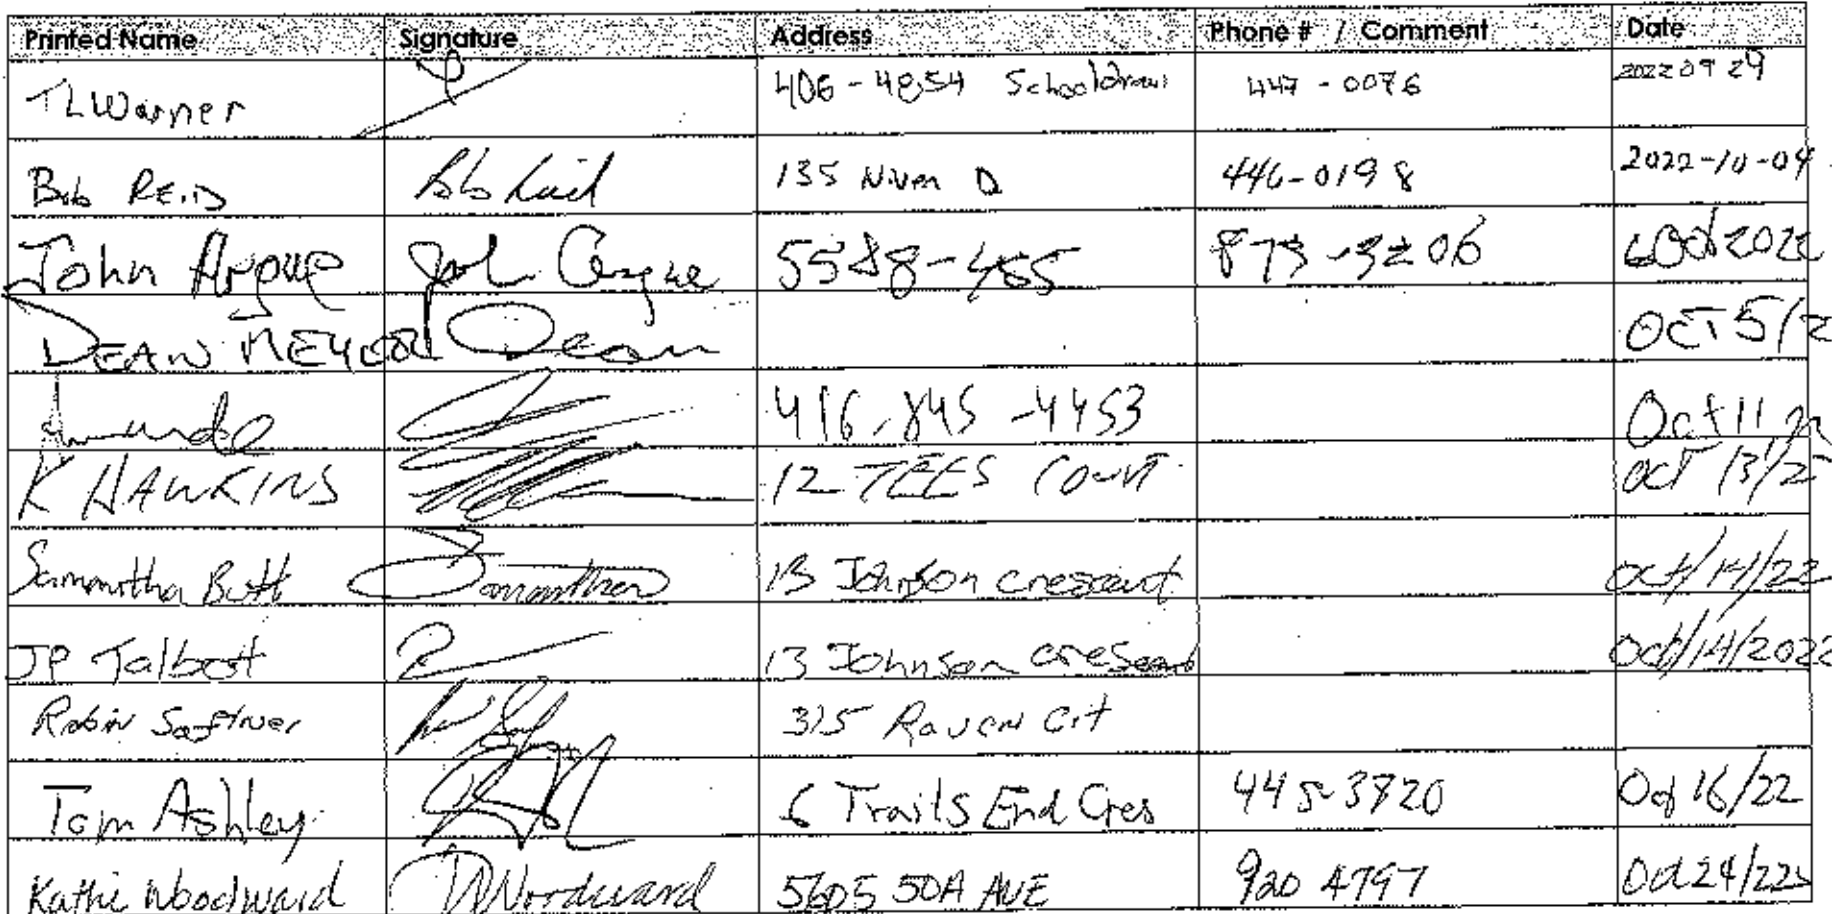 Printed Name Signature Address Phone # / Comment Date
TL Warner 406 - 4854 School 447 - 0076 2022 09 29
Bob REID Bob Reid 135 Niven D 446-0198 2022-10-04
John Argue John Argue 873-3206 6 Oct 2022
DEAN MEYER Dean OCT 5/2
416-845-4453 Oct 11
K HAWKINS 12 TEES COURT OCT 13/22
Samantha Samantha 13 Johnson crescent Oct/14/22
JP Talbott 13 Johnson crescent Oct/14/2022
Robin 315 Raven Crt
Tom Ashley 6 Trails End Cres 445-3720 Oct 16/22
Kathie Woodward KWoodward 5605 50A AVE 920 4797 Oct 24/22